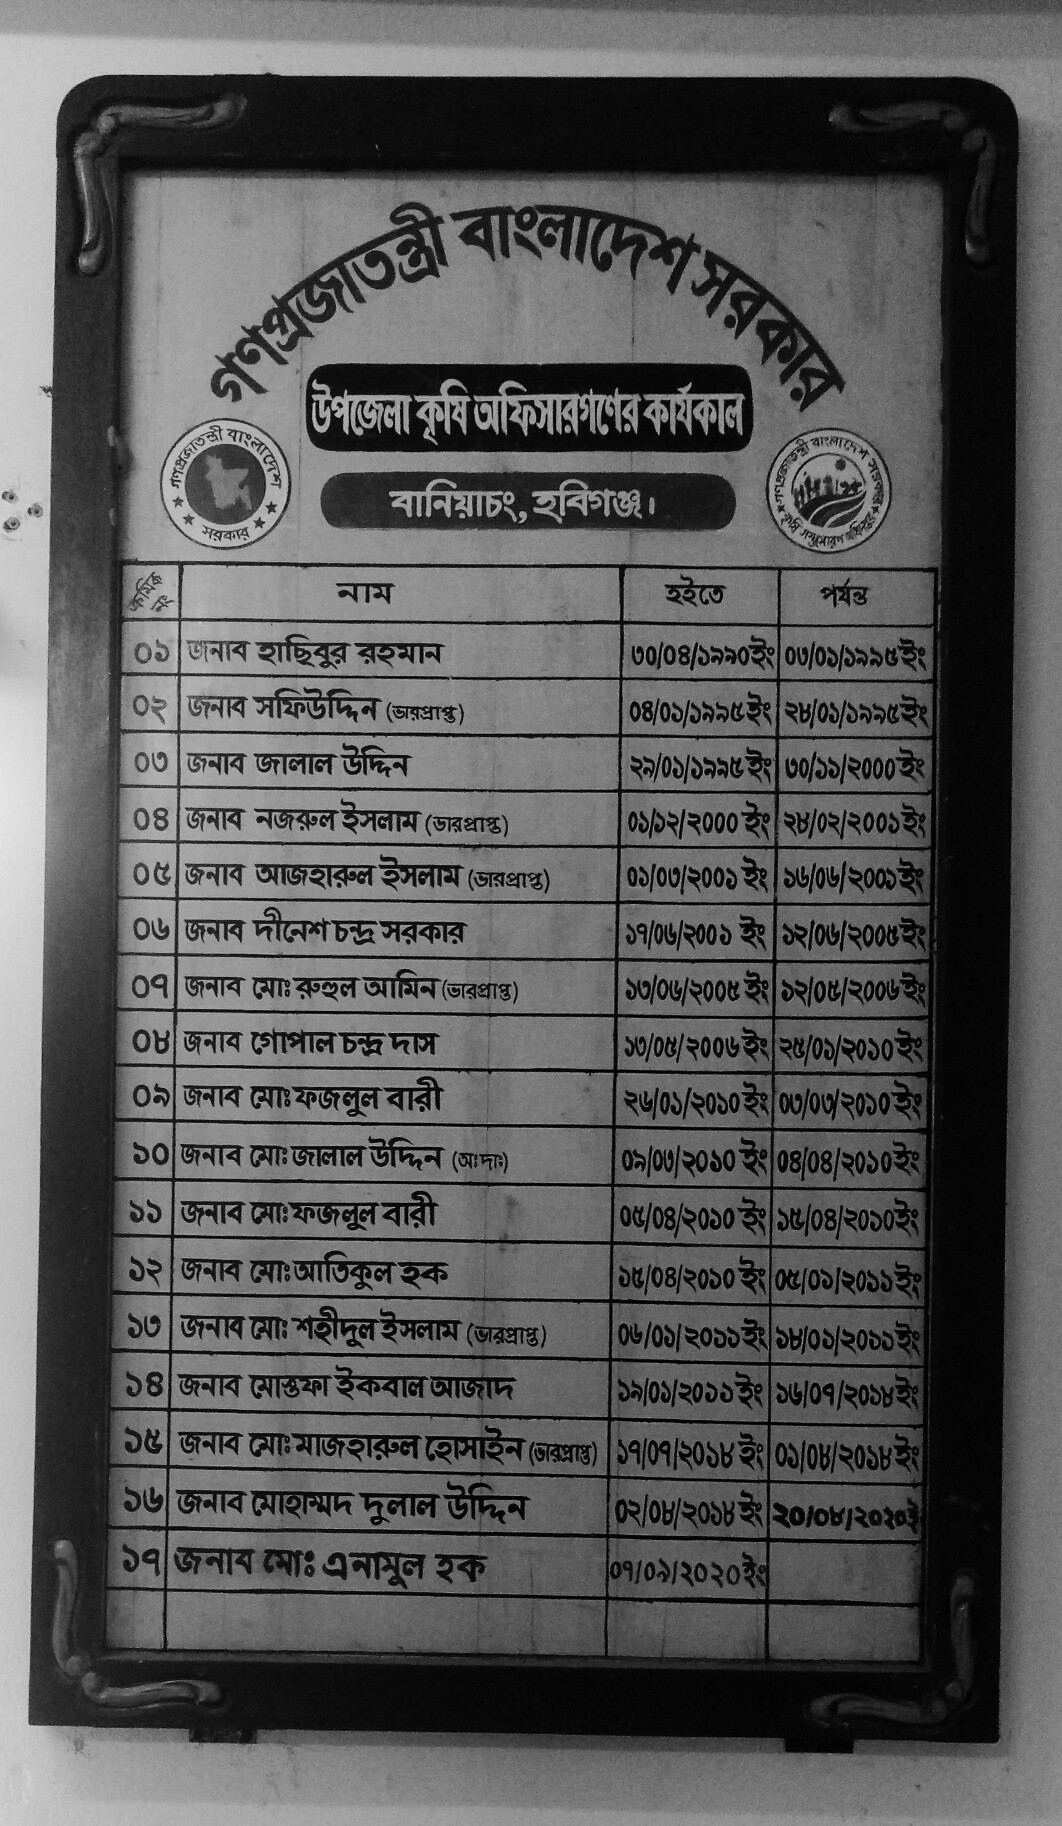 গণপ্রজাতন্ত্রী বাংলাদেশ সরকার
উপজেলা কৃষি অফিসারগণের কার্যকাল
বানিয়াচং, হবিগঞ্জ।
গণপ্রজাতন্ত্রী বাংলাদেশ সরকার
গণপ্রজাতন্ত্রী বাংলাদেশ সরকার কৃষি সম্প্রসারণ অধিদপ্তর
ক্রমিক নং নাম হইতে পর্যন্ত
০১ জনাব হাছিবুর রহমান ৩০/০৪/১৯৯০ইং ০৩/০১/১৯৯৫ইং
০২ জনাব সফিউদ্দিন (ভারপ্রাপ্ত) ০৪/০১/১৯৯৫ইং ২৮/০১/১৯৯৫ইং
০৩ জনাব জালাল উদ্দিন ২৯/০১/১৯৯৫ ইং ৩০/১১/২০০০ ইং
০৪ জনাব নজরুল ইসলাম (ভারপ্রাপ্ত) ০১/১২/২০০০ ইং ২৮/০২/২০০১ইং
০৫ জনাব আজহারুল ইসলাম (ভারপ্রাপ্ত) ০১/০৩/২০০১ ইং ১৬/০৬/২০০১ইং
০৬ জনাব দীনেশ চন্দ্র সরকার ১৭/০৬/২০০১ ইং ১২/০৬/২০০৫ইং
০৭ জনাব মোঃ রুহুল আমিন (ভারপ্রাপ্ত) ১৩/০৬/২০০৫ ইং ১২/০৫/২০০৬ ইং
০৮ জনাব গোপাল চন্দ্র দাস ১৩/০৫/২০০৬ ইং ২৫/০১/২০১০ ইং
০৯ জনাব মোঃ ফজলুল বারী ২৬/০১/২০১০ ইং ০৩/০৩/২০১০ ইং
১০ জনাব মোঃ জালাল উদ্দিন (অঃদাঃ) ০৯/০৩/২০১০ ইং ০৪/০৪/২০১০ইং
১১ জনাব মোঃ ফজলুল বারী ০৫/০৪/২০১০ ইং ১৫/০৪/২০১০ইং
১২ জনাব মোঃ আতিকুল হক ১৫/০৪/২০১০ ইং ০৫/০১/২০১১ইং
১৩ জনাব মোঃ শহীদুল ইসলাম (ভারপ্রাপ্ত) ০৬/০১/২০১১ইং ১৮/০১/২০১১ইং
১৪ জনাব মোস্তফা ইকবাল আজাদ ১৯/০১/২০১১ইং ১৬/০৭/২০১৮ইং
১৫ জনাব মোঃ মাজহারুল হোসাইন (ভারপ্রাপ্ত) ১৭/০৭/২০১৮ ইং ০১/০৮/২০১৮ ইং
১৬ জনাব মোহাম্মদ দুলাল উদ্দিন ০২/০৮/২০১৮ ইং ২০/০৮/২০২০ই
১৭ জনাব মোঃ এনামুল হক ০৭/০৯/২০২০ইং